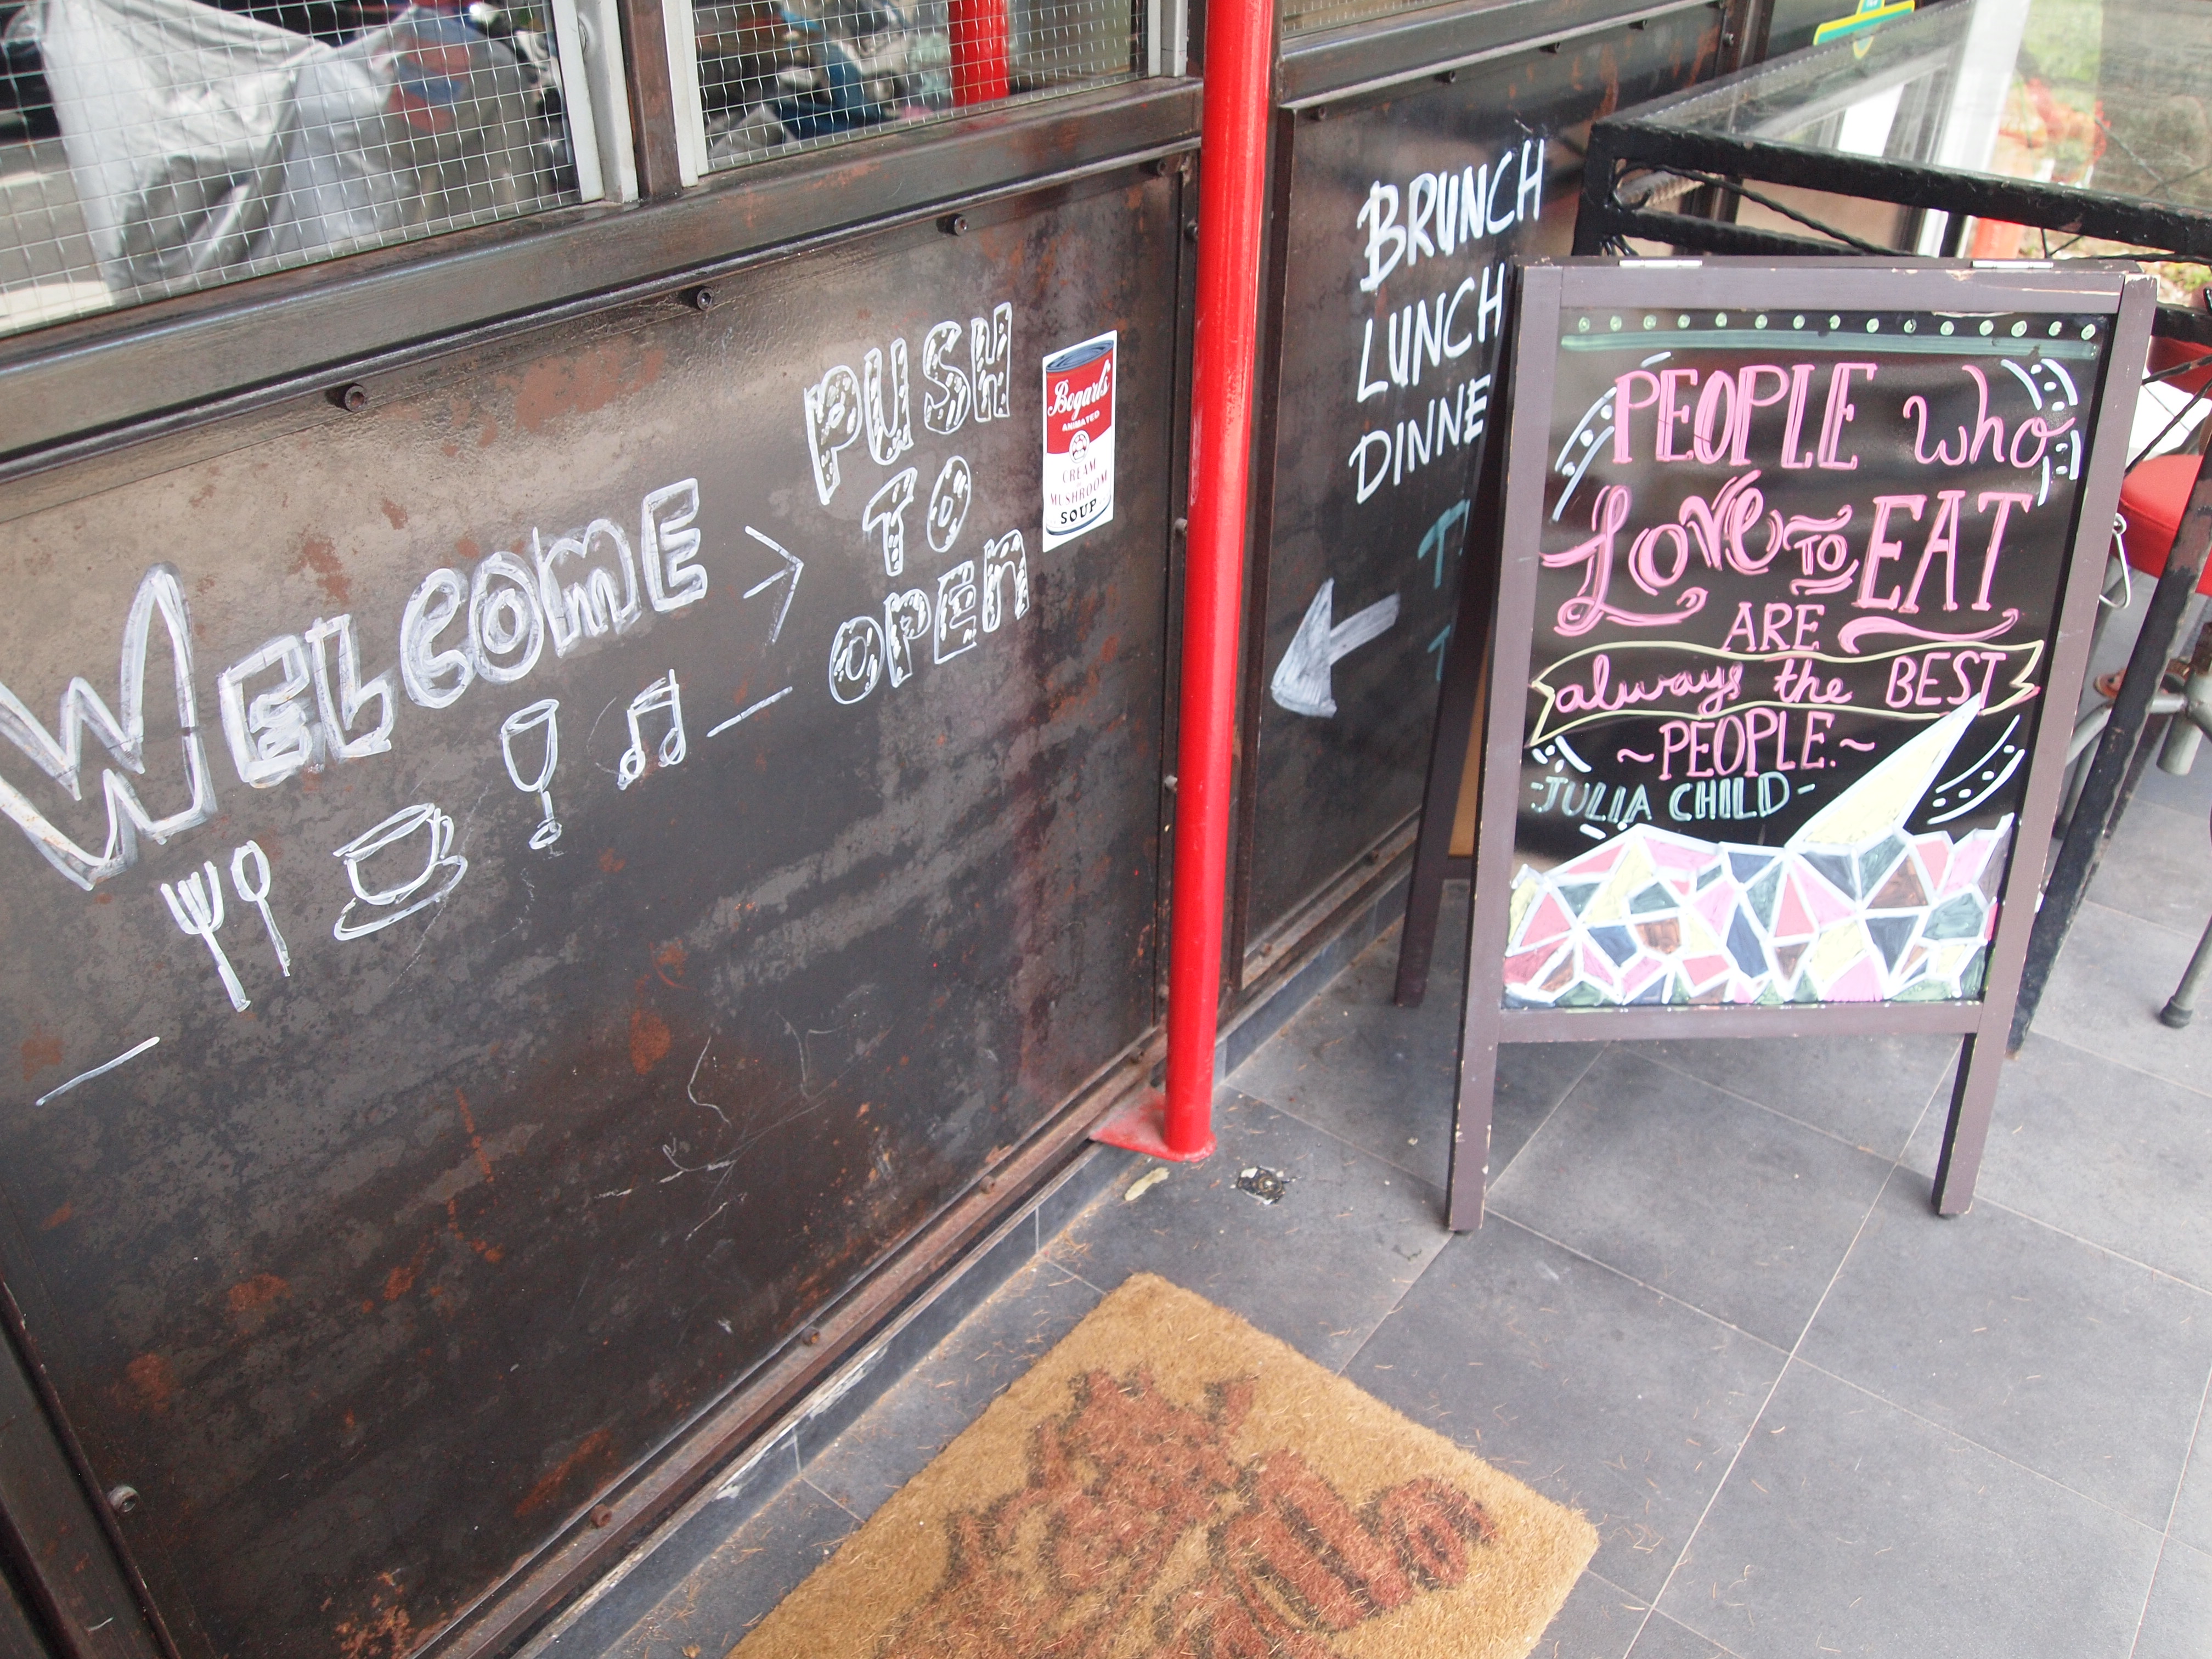 WELCOME
PUSH
TO
OPEN
Bogart's
ANIMATED
CREAM
MUSHROOM
SOUP
BRUNCH
LUNCH
DINNE
PEOPLE who
Love TO EAT
ARE
always the BEST
~PEOPLE.~
-JULIA CHILD-